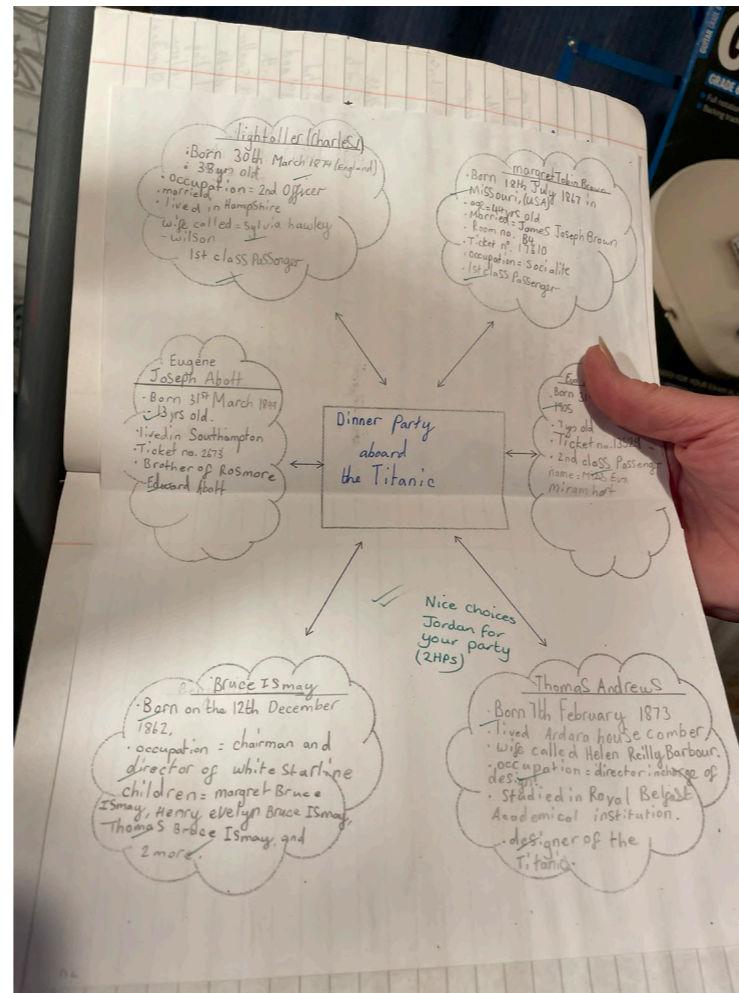 lightoller (Charles)
• Born 30th March 1874 (England)
• 38 yrs old.
• occupation = 2nd Officer
• married
• lived in Hampshire
wife called = Sylvia hawley
- wilson
1st class Passenger
margret Tobin Brown
• Born 18th July 1867 in
Missouri, (USA)
• age = 44 yrs old
• Married = James Joseph Brown
• Room no. B4
• Ticket nº. 17610
• occupation = Socialite
• 1st class Passenger
Eugene
Joseph Abott
• Born 31st March
• 13 yrs old.
• lived in Southampton
• Ticket no. 2673
• Brother of Rosmore
Edward Abott
Dinner Party
aboard
the Titanic
Born
• 7 yrs old
• Ticket no.
• 2nd class Passenger
name = Miss Eva
miram hart
Nice choices
Jordan for
your party
(2HPs)
Bruce Ismay
• Born on the 12th December
1862,
• occupation = chairman and
director of white Starline
children = margret Bruce
Ismay, Henry evelyn Bruce Ismay,
Thomas Bruce Ismay, and
2 more.
Thomas Andrews
• Born 7th February 1873
• lived Ardara house comber,
• wife called Helen Reilly Barbour.
• occupation = director incharge of
design
• Studied in Royal Belfast
Academical institution.
• designer of the
Titanic.
GUITAR
GRADE